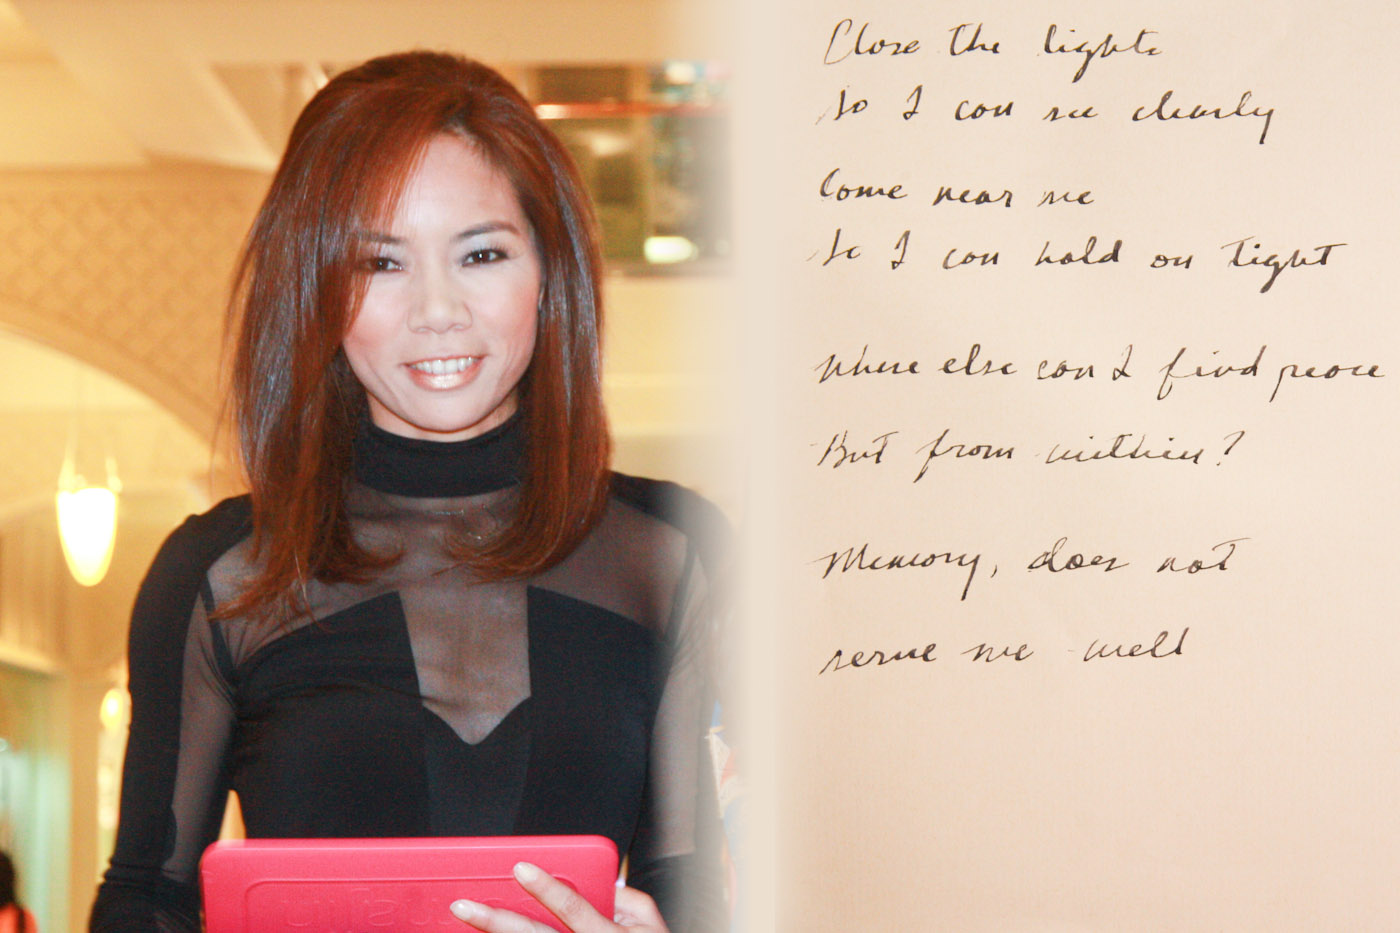 Close the lights
So I can see clearly
Come near me
So I can hold on tight
Where else can I find peace
But from within?
Memory, does not
serve me well